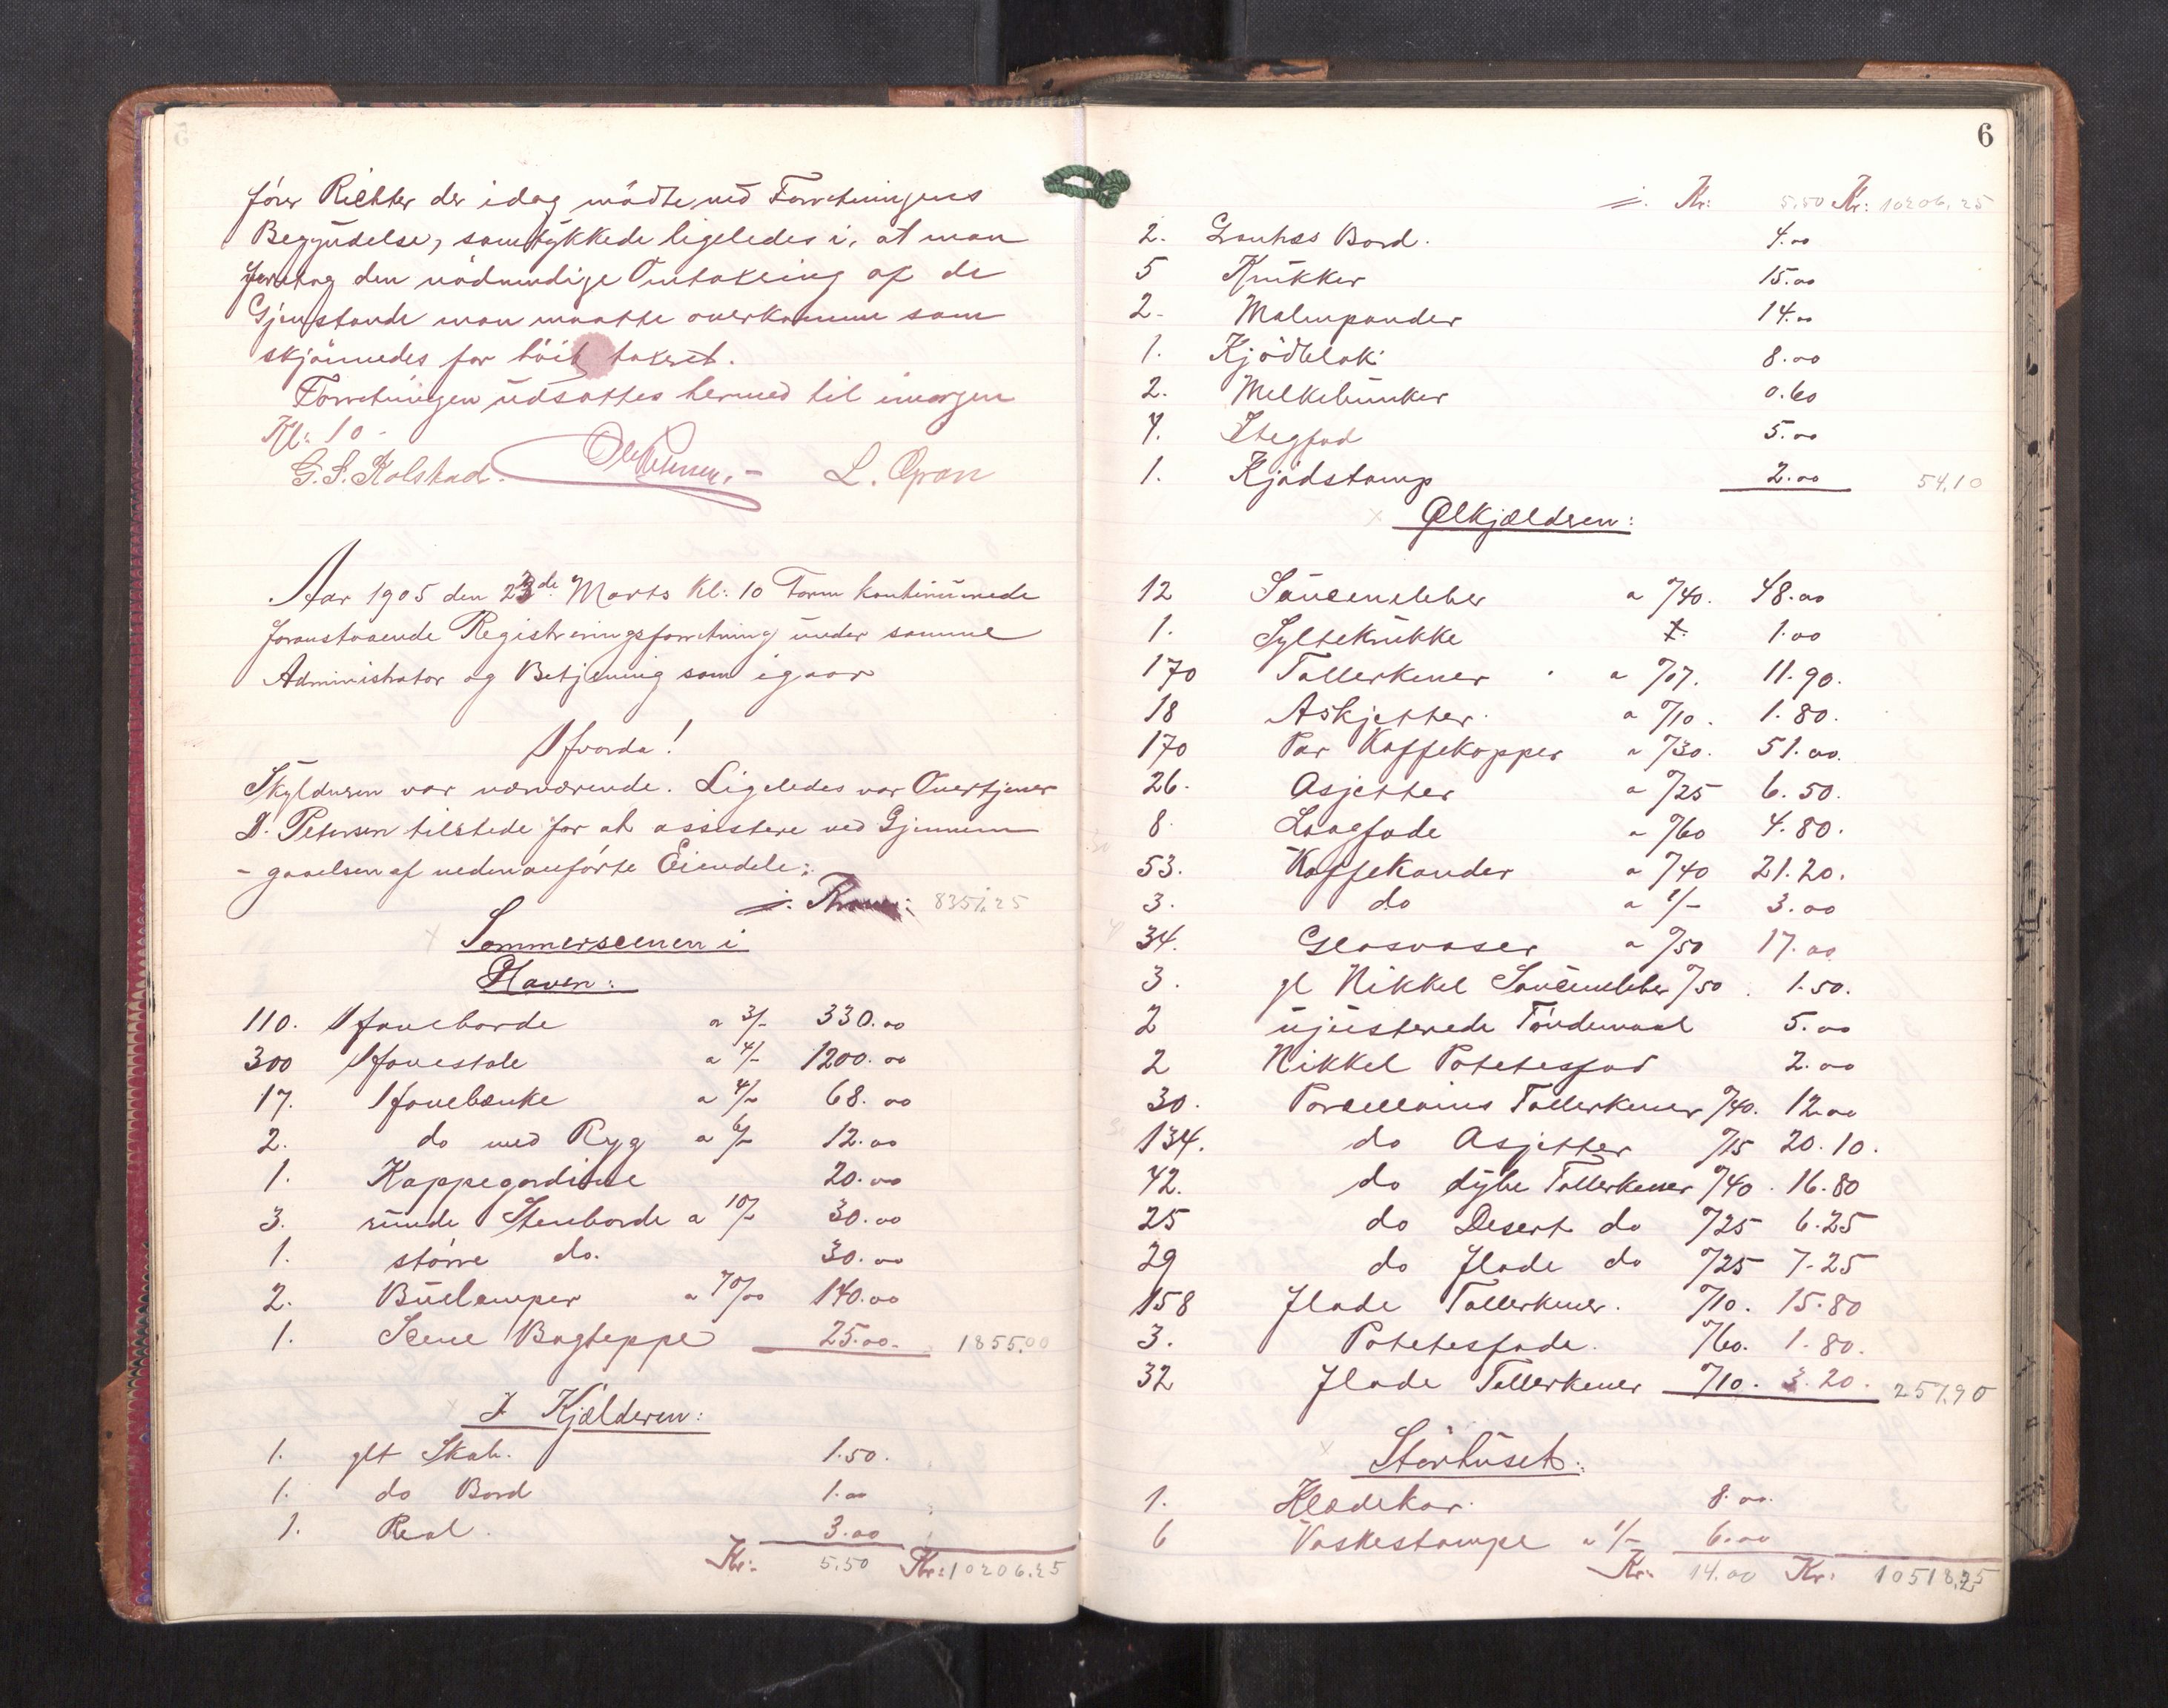 fører Richter der idag mödte ved Forretningens
Begyndelse, samtykkede ligeledes i, at man
foretog den nödvendige Omtaxering af de
Gjenstande man maatte overkomme som
skjönnedes for höit taxeret.
Forretningen udsattes hermed til imorgen
Kl: 10 -
G. S. Kolstad. Ole Petersen.- L. Gran
Aar 1905 den 23de Marts Kl: 10 Form kontinuerede
foranstaaende Registreringsforretning under samme
Administrator og Betjening som igaar
Hvorda!
Skyldneren var nærværende. Ligeledes var Overtjener
D. Petersen tilstede for at assistere ved Gjennem
- gaaelsen af nedenanförte Eiendele:
8351,25
Sommerscenen i
Haven:
110. Haveborde a 3/- 330.00
300 Havestole a 4/- 1200.00
17. Havebænke a 4/- 68.00
2. do med Ryg a 6/- 12.00
1. Kappegardine 20.00
3. runde Stenborde a 10/- 30.00
1. större do. 30.00
2. Buelamper a 70/00 140.00
1. Scene Bagteppe 25.00. 1855.00
I Kjælderen:
1. glt Skab. 1.50.
1. do Bord 1.00
1. Reol. 3.00
Kr: 5.50 Kr: 10206.25
6
Kr: 5,50 Kr: 10206,25
2. Bord. 4.00
5 Krukker 15.00
2- Malmpander 14.00
1. Kjödblok 8.00
2. Melkebunker 0.60
4. Stegfad 5.00
1. Kjödstamp 2.00 54,10
Ølkjælderen:
12 Saucenebber a "/40. 48.00
1. Syltekrukke 1.00
170 Tallerkener a "/07. 11.90.
18 Askjetter. a "/10. 1.80.
170 Par Kaffekopper a "/30. 51.00.
26. Asjetter a "/25 6.50.
8 Langfade a "/60 4.80.
53. Kaffekander a "/40 21.20.
3. do a 1/- 3.00
34. Glasvaser a "/50 17.00
3. gl Nikkel Saucenebber "/50. 1.50.
2 ujusterede Töndemaal 5.00
2 Nikkel Potetesfad 2.00
30. Porcellains Tallerkener "/40. 12.00
134. do Asjetter "/15 20.10.
42. do dybe Tallerkener "/40. 16.80
25 do Desert do "/25 6.25
29 do flade do "/25 7.25
158 flade Tallerkener. "/10. 15.80
3. Potetesfade. "/60. 1.80.
32 flade Tallerkener "/10. 3.20. 257,90
Störhuset:
1. Klædekar. 8.00.
6 Vaskestampe a 1/- 6.00
Kr: 14.00 Kr: 10518,25